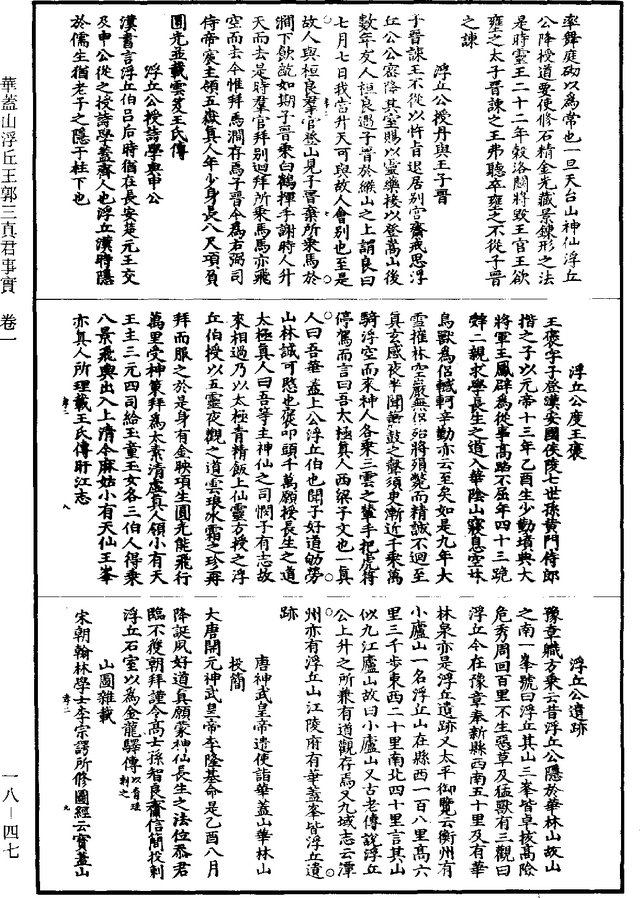 率舞庭砌以為常也一旦天台山神仙浮丘
公降授道要使修石精金光藏景鍊形之法
是時靈王二十二年穀洛鬬將毀王宮王欲
壅之太子晉諫之王弗聽卒壅之不從子晉
之諫
浮丘公授丹與王子晉
子晉諫王不從以忤旨退居別宮齋戒思浮
丘公公密降其室賜以靈藥接以登嵩山後
數年友人桓良遇子晉於緱山之上謂良曰
七月七日我當升天可與故人會別也至是
故人與桓良羣官登山見子晉棄所乘馬於
澗下飲齕如期子晉乘白鶴揮手謝時人升
天而去是時羣官拜別迴拜所乘馬馬亦飛
空而去今惟拜馬澗存焉子晉今為右弼司
侍帝宸主領五嶽真人年少身長八尺項負
圓光並載雲笈王氏傳
浮丘公授詩學與申公
漢書言浮丘伯呂后時猶在長安楚元王交
及申公從之授詩學蓋齊人也浮丘漢時隱
於儒生猶老子之隱于柱下也
浮丘公度王褒
王褒字子登漢安國侯陵七世孫黃門侍郎
揩之子以元帝十三年乙酉生少勤墳典大
將軍王鳳辟為從事高蹈不屈年四十三跪
辭二親求學長生之道入華陰山寢息空林
鳥獸為侶轗軻辛勤亦云至矣如是九年大
雪摧林空巖無侶殆將殞斃而精誠不迴至
真玄感夜半聞簫鼓之聲須臾漸近千乘萬
騎浮空而來神人各乘三雲之輦手把虎符
停駕而言曰吾太極真人西梁子文也一真
人曰吾華蓋上公浮丘伯也聞子好道劬勞
山林誠可愍也褒叩頭千萬願授長生之道
太極真人曰吾等主神仙之司憫子有志故
來相過乃以太極青精飯上仙靈方授之浮
丘伯授以五靈夜觀之道雲琅水霜之珍再
拜而服之於是身有金映項生圓光能飛行
萬里受神策拜為太素清虛真人領小有天
王主三元四司給玉童玉女各三伯人得乘
八景飛輿出入上清今麻姑小有天仙王峯
亦真人所理載王氏傳旴江志
浮丘公遺跡
豫章職方乘云昔浮丘公隱於華林山故山
之南一峯號曰浮丘其山三峯皆卓拔高險
危秀周回百里不生惡草及猛獸有三觀曰
浮丘今在豫章奉新縣西南五十里及有華
林泉亦是浮丘遺跡又太平御覽云衡州有
小廬山一名浮丘山在縣西一百八里高六
里三千步東西二十里南北四十里言其山
似九江廬山故曰小廬山又古老傳說浮丘
公上升之所兼有道觀存焉又九域志云潭
州亦有浮丘山江陵府有華蓋峯皆浮丘遺
跡
唐神武皇帝遣使詣華蓋山華林山
投簡
大唐開元神武皇帝李隆基命是乙酉八月
降誕夙好道真願蒙神仙長生之法位忝君
臨不獲朝拜謹令高士孫智良齎信簡投刺
浮丘石室以為金龍驛傳
山圖雜載
宋朝翰林學士李宗諤所修圖經云寶蓋山
華蓋山浮丘王郭三真君事實 卷一
一八－四七